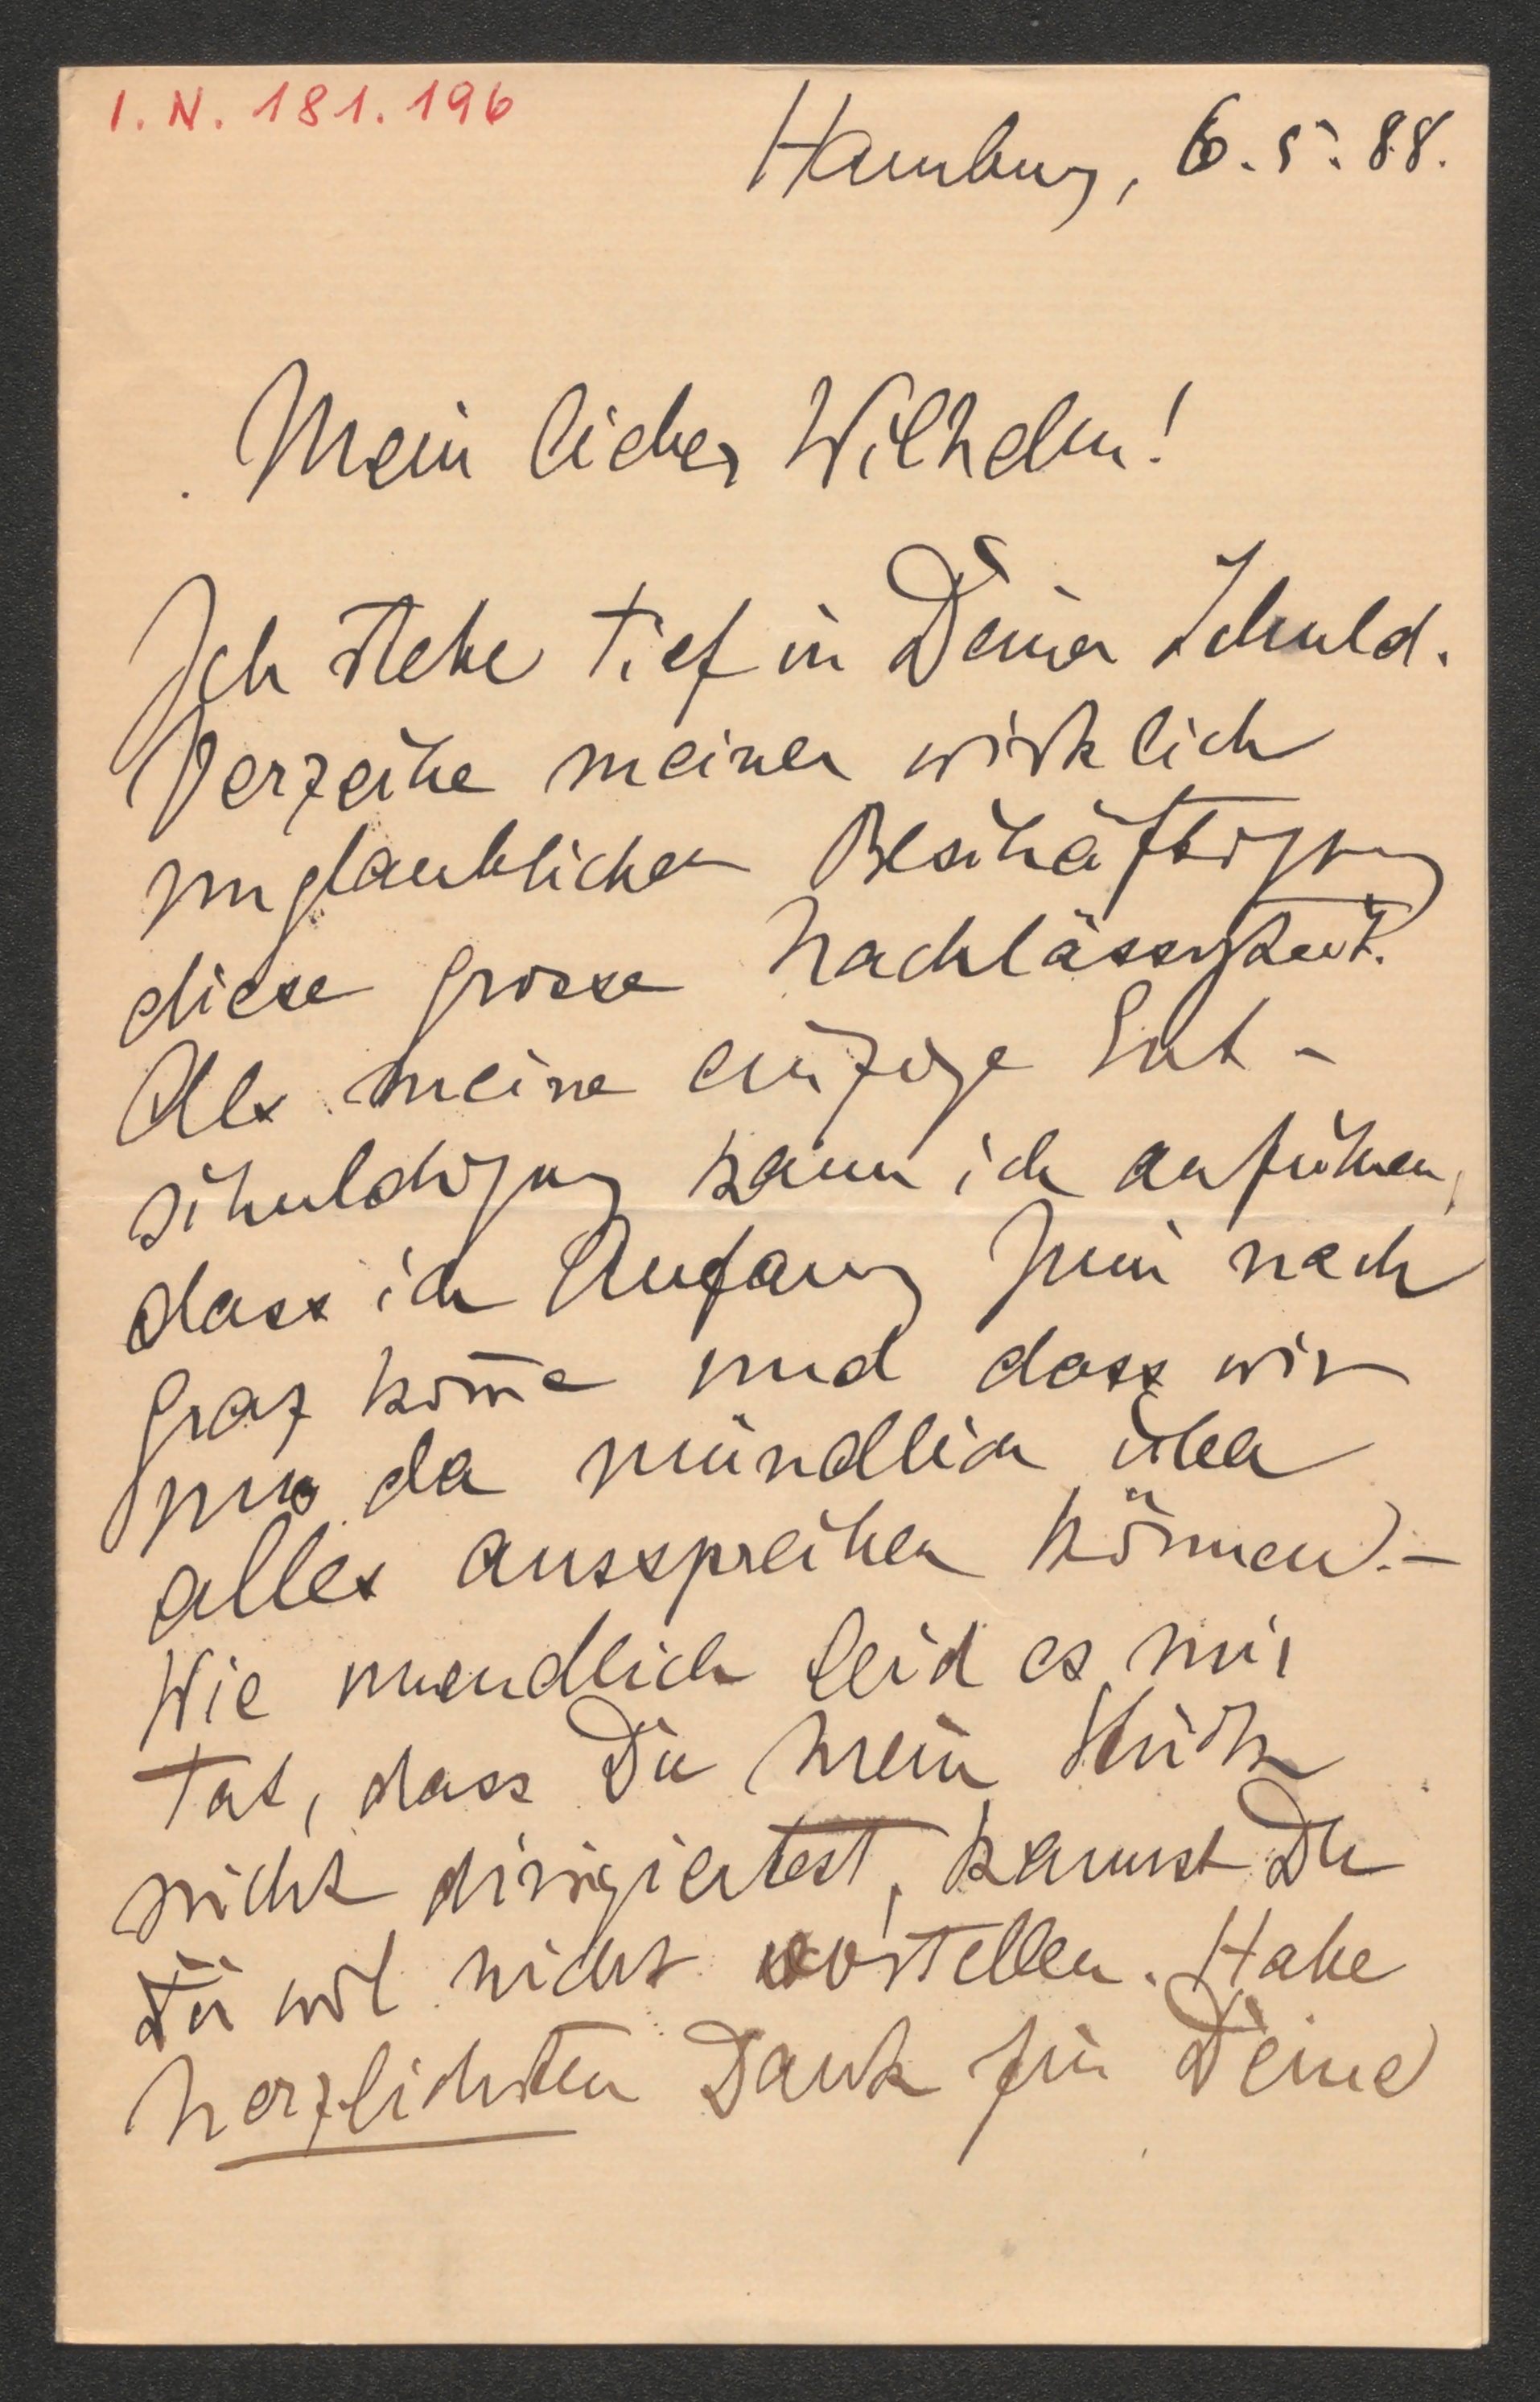 I. N. 181.196
Hamburg, 6. 5. 88.
Mein lieber Wilhelm!
Ich stehe tief in Deiner Schuld.
Verzeihe meiner wirklich
unglaublichen Beschäftigung
diese grosse Nachlässigkeit.
Als meine einzige Ent-
schuldigung kann ich anführen,
dass ich Anfang Juni nach
Graz kom̄e und dass wir
uns da mündlich über
alles aussprechen können. –
Wie unendlich leid es mir
tat, dass Du mein Stück
nicht dirigiertest, kannst Du
Dir wol nicht vorstellen. Habe
herzlichsten Dank für Deine